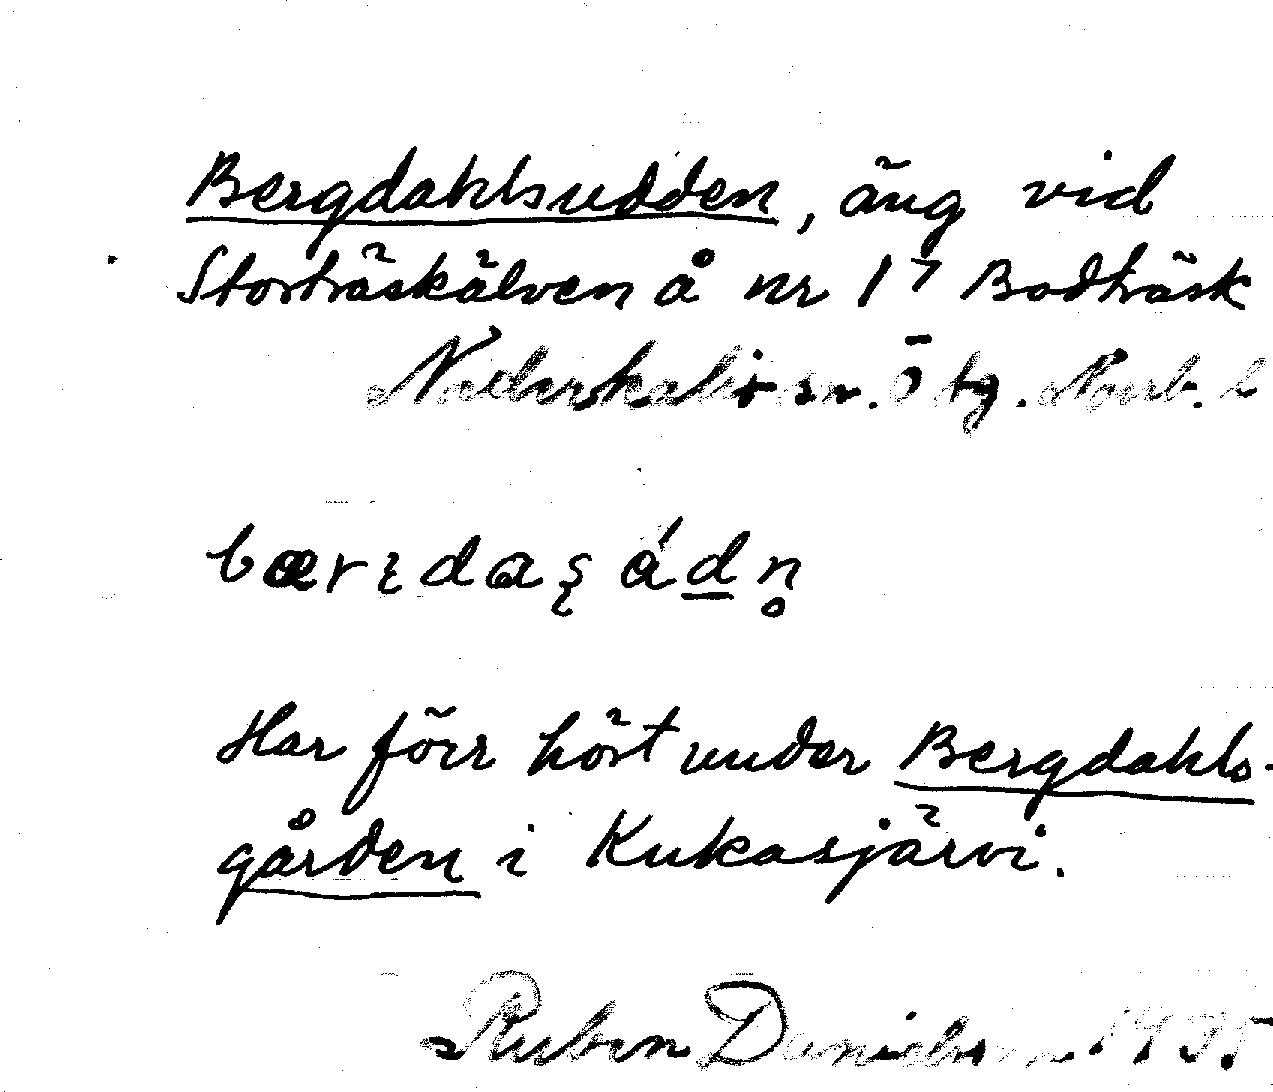 Bergdahlsudden, äng vid
Storträskälven å nr 17 Bodträsk
Nederkalix sn. Ö bg. Norrb. l
Har förr hört under Bergdahls-
gården i Kukasjärvi.
Ruben Danielsson 1935